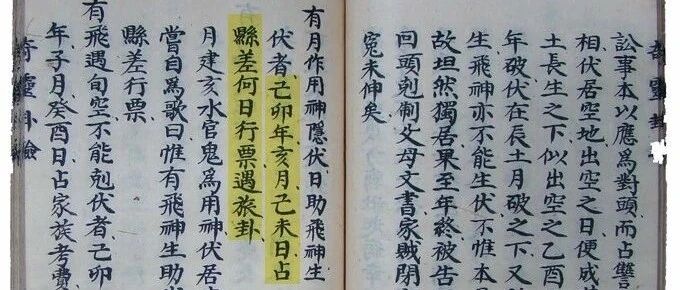 訟事本以應爲對頭而占讐
相伏居空地出空之日便成
土長生之下似出空之乙酉
年破伏在辰土月破之下又
生飛神亦不能生伏不惟本
故坦然獨居果至年終被告
回頭剋制父母文書家賊閉
寃未伸矣
有月作用神隱伏日助飛神生
伏者己卯年亥月己未日占
縣差何日行票遇旅卦
月建亥水官鬼爲用神伏居
嘗自爲歌曰惟有飛神生助
縣差行票
有飛遇旬空不能剋伏者己卯
年子月癸酉日占家族考費